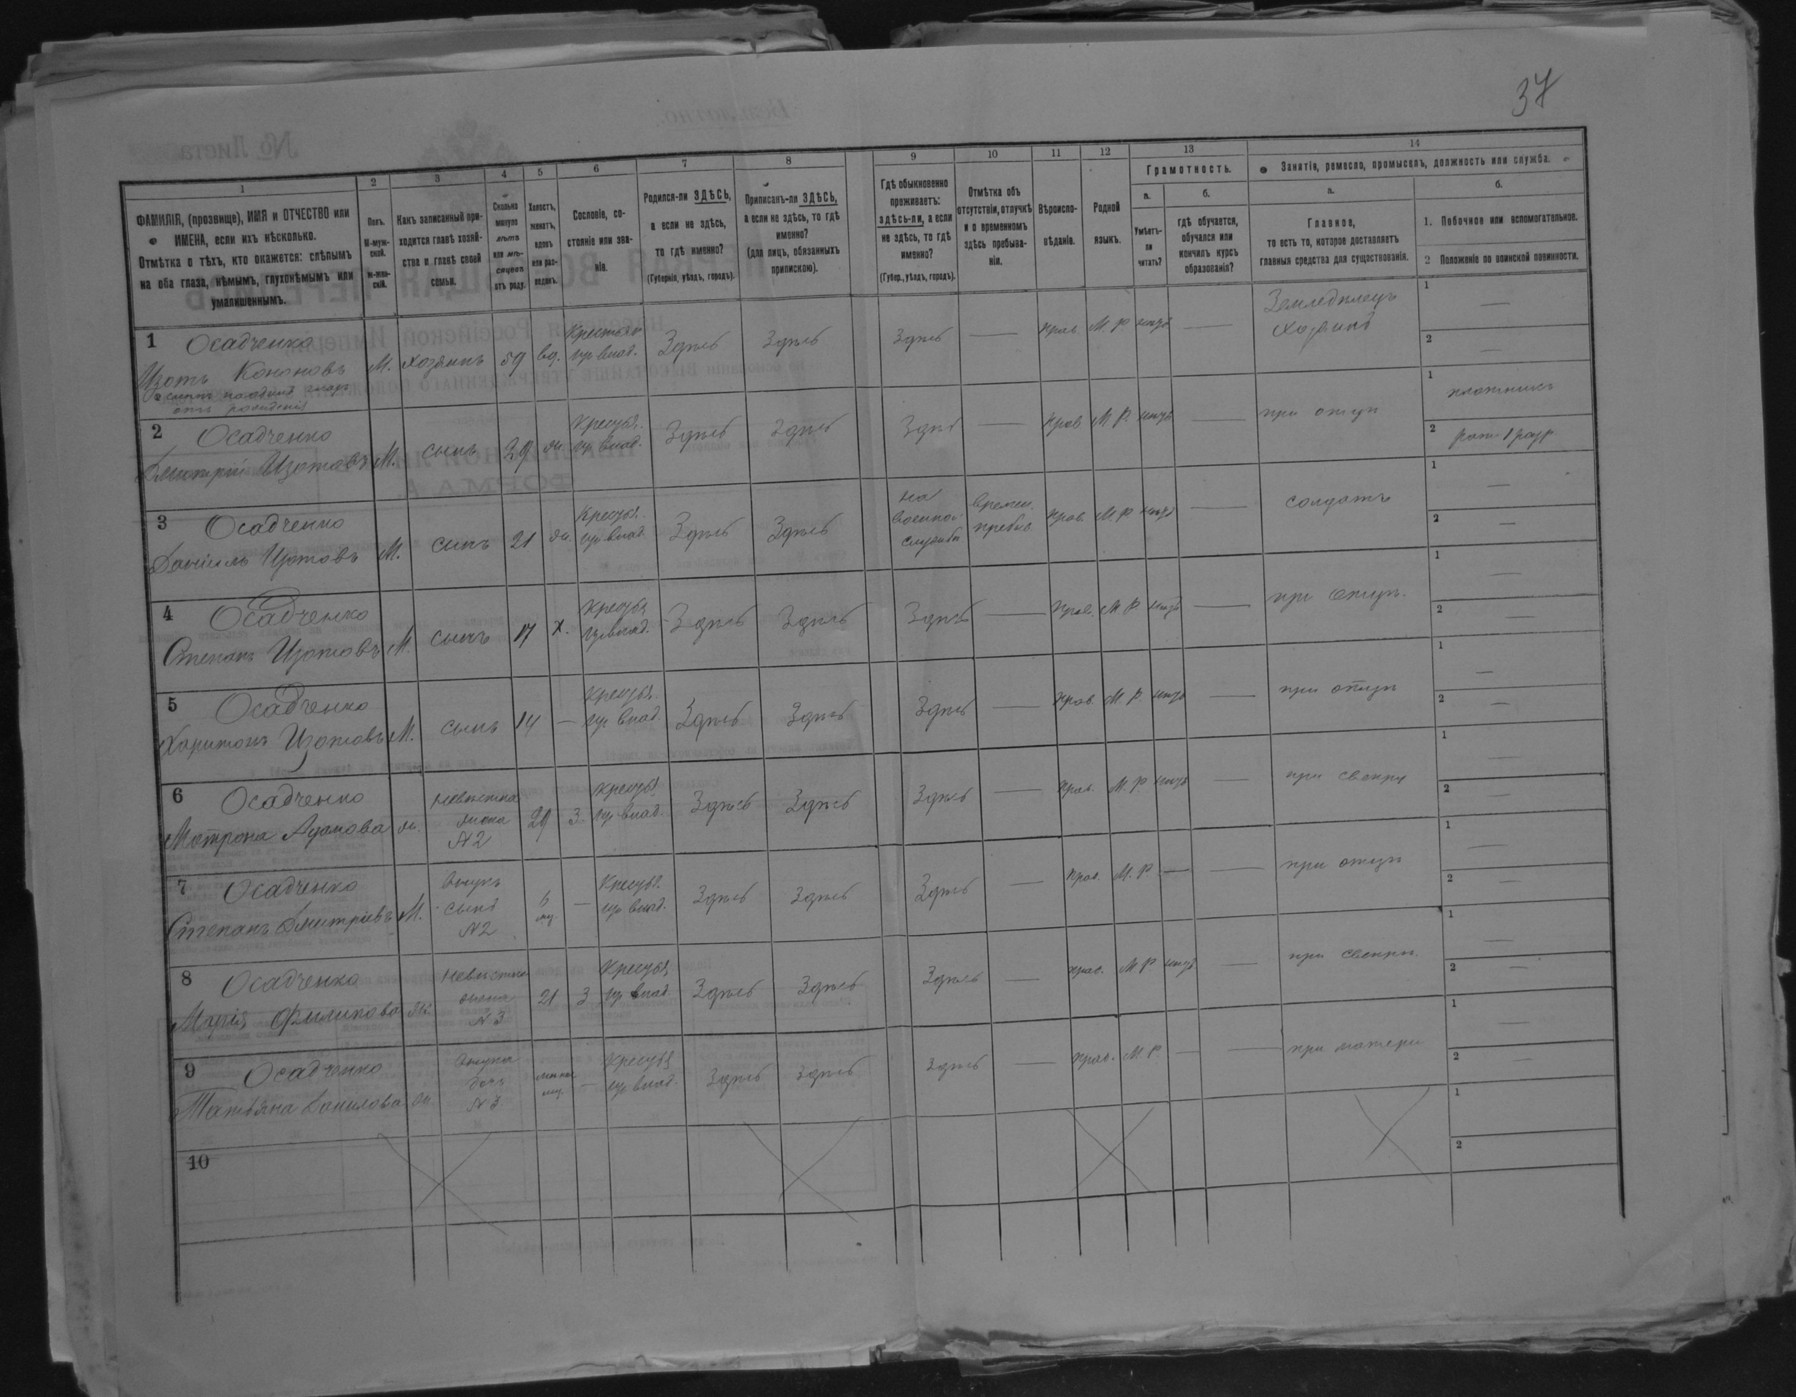 37
1 2 3 4 5 6 7 8 9 10 11 12 13 14
ФАМИЛІЯ, (прозвище), ИМЯ и ОТЧЕСТВО или ИМЕНА, если ихъ нѣсколько.
Отмѣтка о тѣхъ, кто окажется: слѣпымъ на оба глаза, нѣмымъ, глухонѣмымъ или умалишеннымъ.
Полъ.
М-муж-ской.
ж-жен-скій.
Какъ записанный при-ходится главѣ хозяй-ства и главѣ своей семьи.
Сколько минуло лѣтъ или мѣ-сяцевъ отъ роду.
Холостъ, женатъ, вдовъ или раз-веденъ.
Сословіе, со-стояніе или зва-ніе.
Родился-ли ЗДѢСЬ, а если не здѣсь, то гдѣ именно?
(Губернія, уѣздъ, городъ).
Приписанъ-ли ЗДѢСЬ, а если не здѣсь, то гдѣ именно?
(для лицъ, обязанныхъ припискою).
Гдѣ обыкновенно проживаетъ: здѣсь-ли, а если не здѣсь, то гдѣ именно?
(Губер., уѣздъ, городъ).
Отмѣтка объ отсутствіи, отлучкѣ и о временномъ здѣсь пребыва-ніи.
Вѣроиспо-вѣданіе.
Родной языкъ.
Грамотность.
а.
Умѣетъ-ли читать?
б.
гдѣ обучается, обучался или кончилъ курсъ образованія?
Занятіе, ремесло, промыселъ, должность или служба.
а.
Главное,
то есть то, которое доставляетъ главныя средства для существованія.
б.
1. Побочное или вспомогательное.
2 Положеніе по воинской повинности.
1 Осадченко Изотъ Кононовъ М. хозяинъ 59 вд. Крестьян. Здѣсь Здѣсь Здѣсь — прав. М. Р. — Земледѣлецъ хозяинъ 1 — 2 —
2 Осадченко Дмитрій Изотовъ М. сынъ 29 ж. Здѣсь Здѣсь Здѣсь — прав. М. Р. — при отцѣ 1 плотникъ 2
3 Осадченко Даніилъ Изотовъ М. сынъ 21 ж. Здѣсь Здѣсь на военной службѣ времен. пребыв. прав. М. Р. — солдатъ 1 — 2 —
4 Осадченко Степанъ Изотовъ М. сынъ 17 х. Здѣсь Здѣсь Здѣсь — прав. М. Р. — при отцѣ 1 — 2 —
5 Осадченко Харитонъ Изотовъ М. сынъ 14 — Здѣсь Здѣсь Здѣсь — прав. М. Р. — при отцѣ 1 — 2 —
6 Осадченко Мотрона Адамова ж. невѣстка жена №2 29 З. Здѣсь Здѣсь Здѣсь — прав. М. Р. — при свекрѣ 1 — 2 —
7 Осадченко Степанъ Дмитріевъ М. внукъ сынъ №2 6 мц. — Здѣсь Здѣсь Здѣсь — прав. М. Р. — — при отцѣ 1 — 2 —
8 Осадченко Марія Филипова ж. невѣстка жена №3 21 З Здѣсь Здѣсь Здѣсь — прав. М. Р. — при свекрѣ 1 — 2 —
9 Осадченко Татьяна Данилова ж. внучка дочь №3 — Здѣсь Здѣсь Здѣсь — прав. М. Р. — — при матери 1 — 2 —
10 1 2